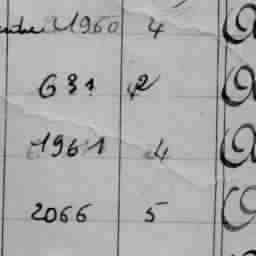 1960 4
631 2
1961 4
2066 5